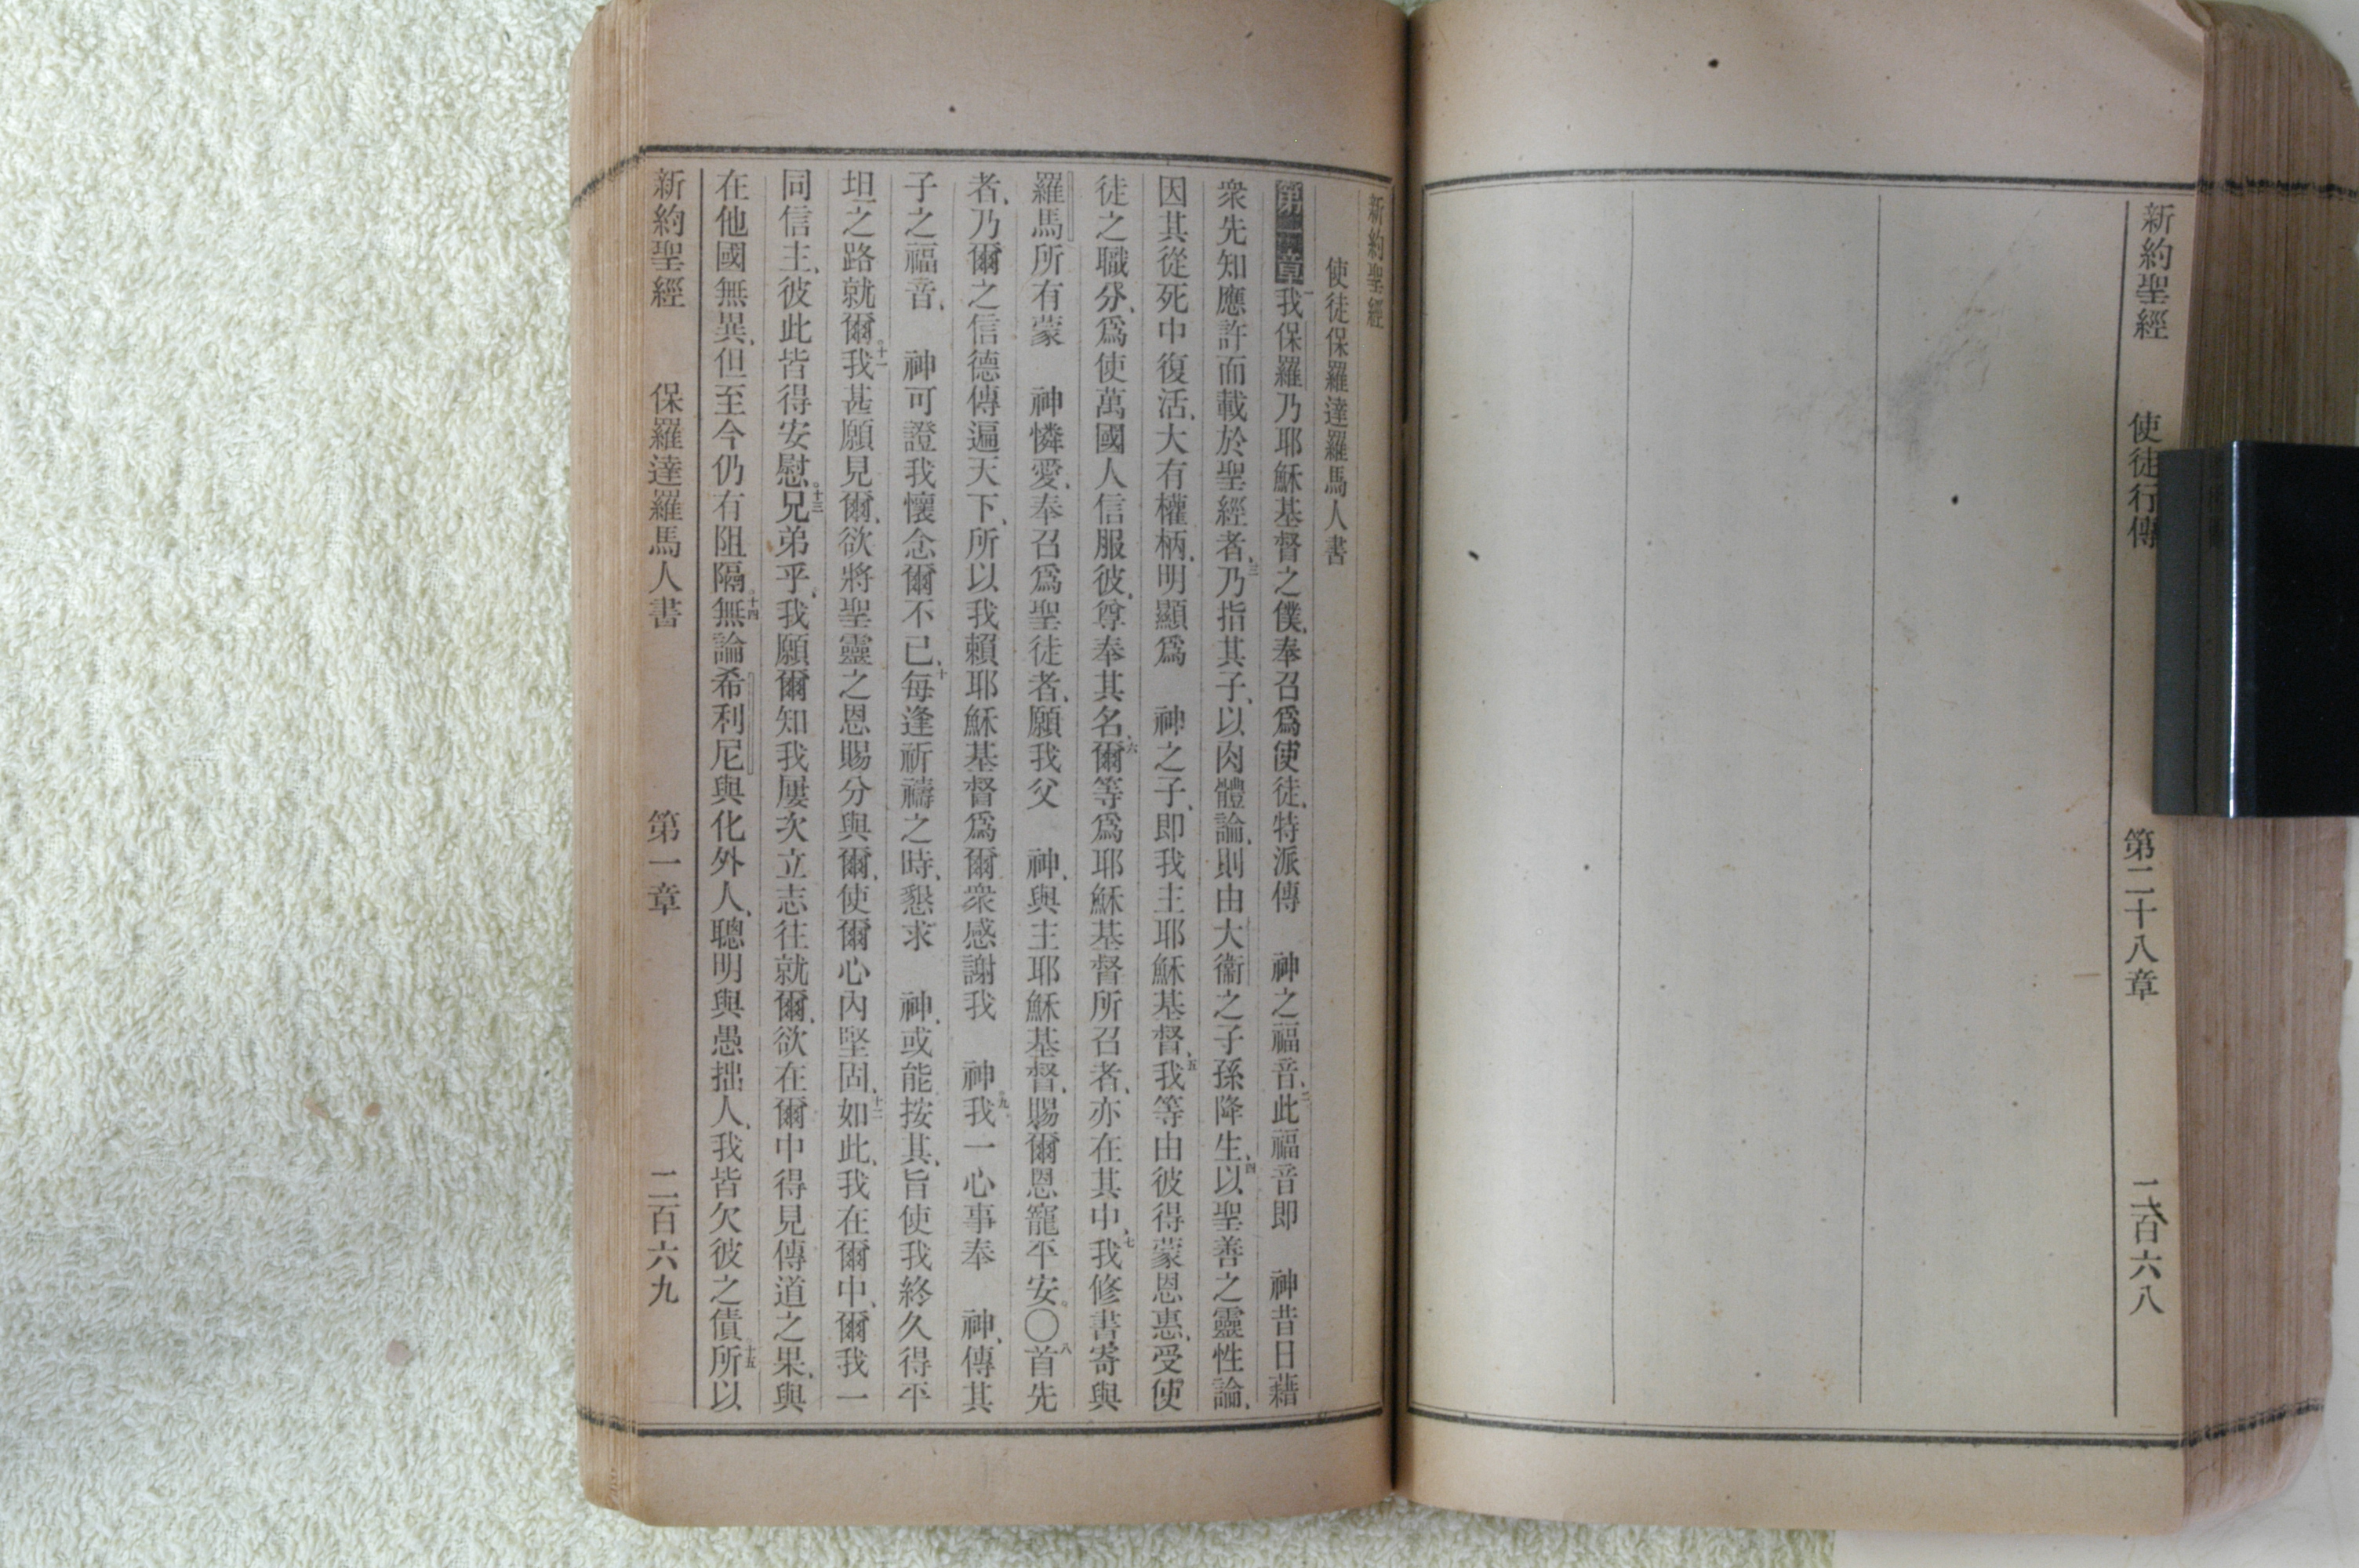 新約聖經 使徒行傳 第二十八章 二百六八
新約聖經
使徒保羅達羅馬人書
第一章一我保羅乃耶穌基督之僕、奉召爲使徒、特派傳 神之福音、二此福音即 神昔日藉
衆先知應許而載於聖經者、三乃指其子、以肉體論、則由大衞之子孫降生、四以聖善之靈性論、
因其從死中復活、大有權柄、明顯爲 神之子、即我主耶穌基督、五我等由彼得蒙恩惠、受使
徒之職分、爲使萬國人信服彼、尊奉其名、六爾等爲耶穌基督所召者、亦在其中、七我修書、寄與
羅馬所有蒙 神憐愛、奉召爲聖徒者、願我父 神、與主耶穌基督、賜爾恩寵平安。〇八首先
者、乃爾之信德傳遍天下、所以我賴耶穌基督爲爾衆感謝我 神。九我一心事奉 神、傳其
子之福音、 神可證我懷念爾不已、十每逢祈禱之時、懇求 神、或能按其旨使我終久得平
坦之路就爾。十一我甚願見爾、欲將聖靈之恩賜分與爾、使爾心內堅固、十二如此、我在爾中、爾我一
同信主、彼此皆得安慰。十三兄弟乎、我願爾知我屢次立志往就爾、欲在爾中得見傳道之果、與
在他國無異、但至今仍有阻隔。十四無論希利尼與化外人、聰明與愚拙人、我皆欠彼之債。十五所以
新約聖經 保羅達羅馬人書 第一章 二百六九